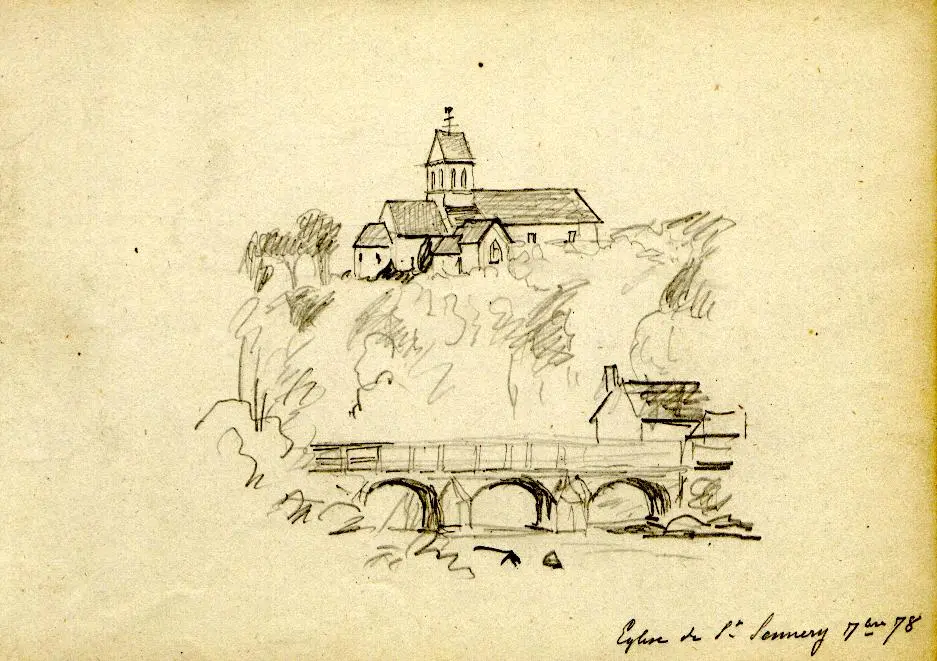 Eglise de St Sennery 7bre 78